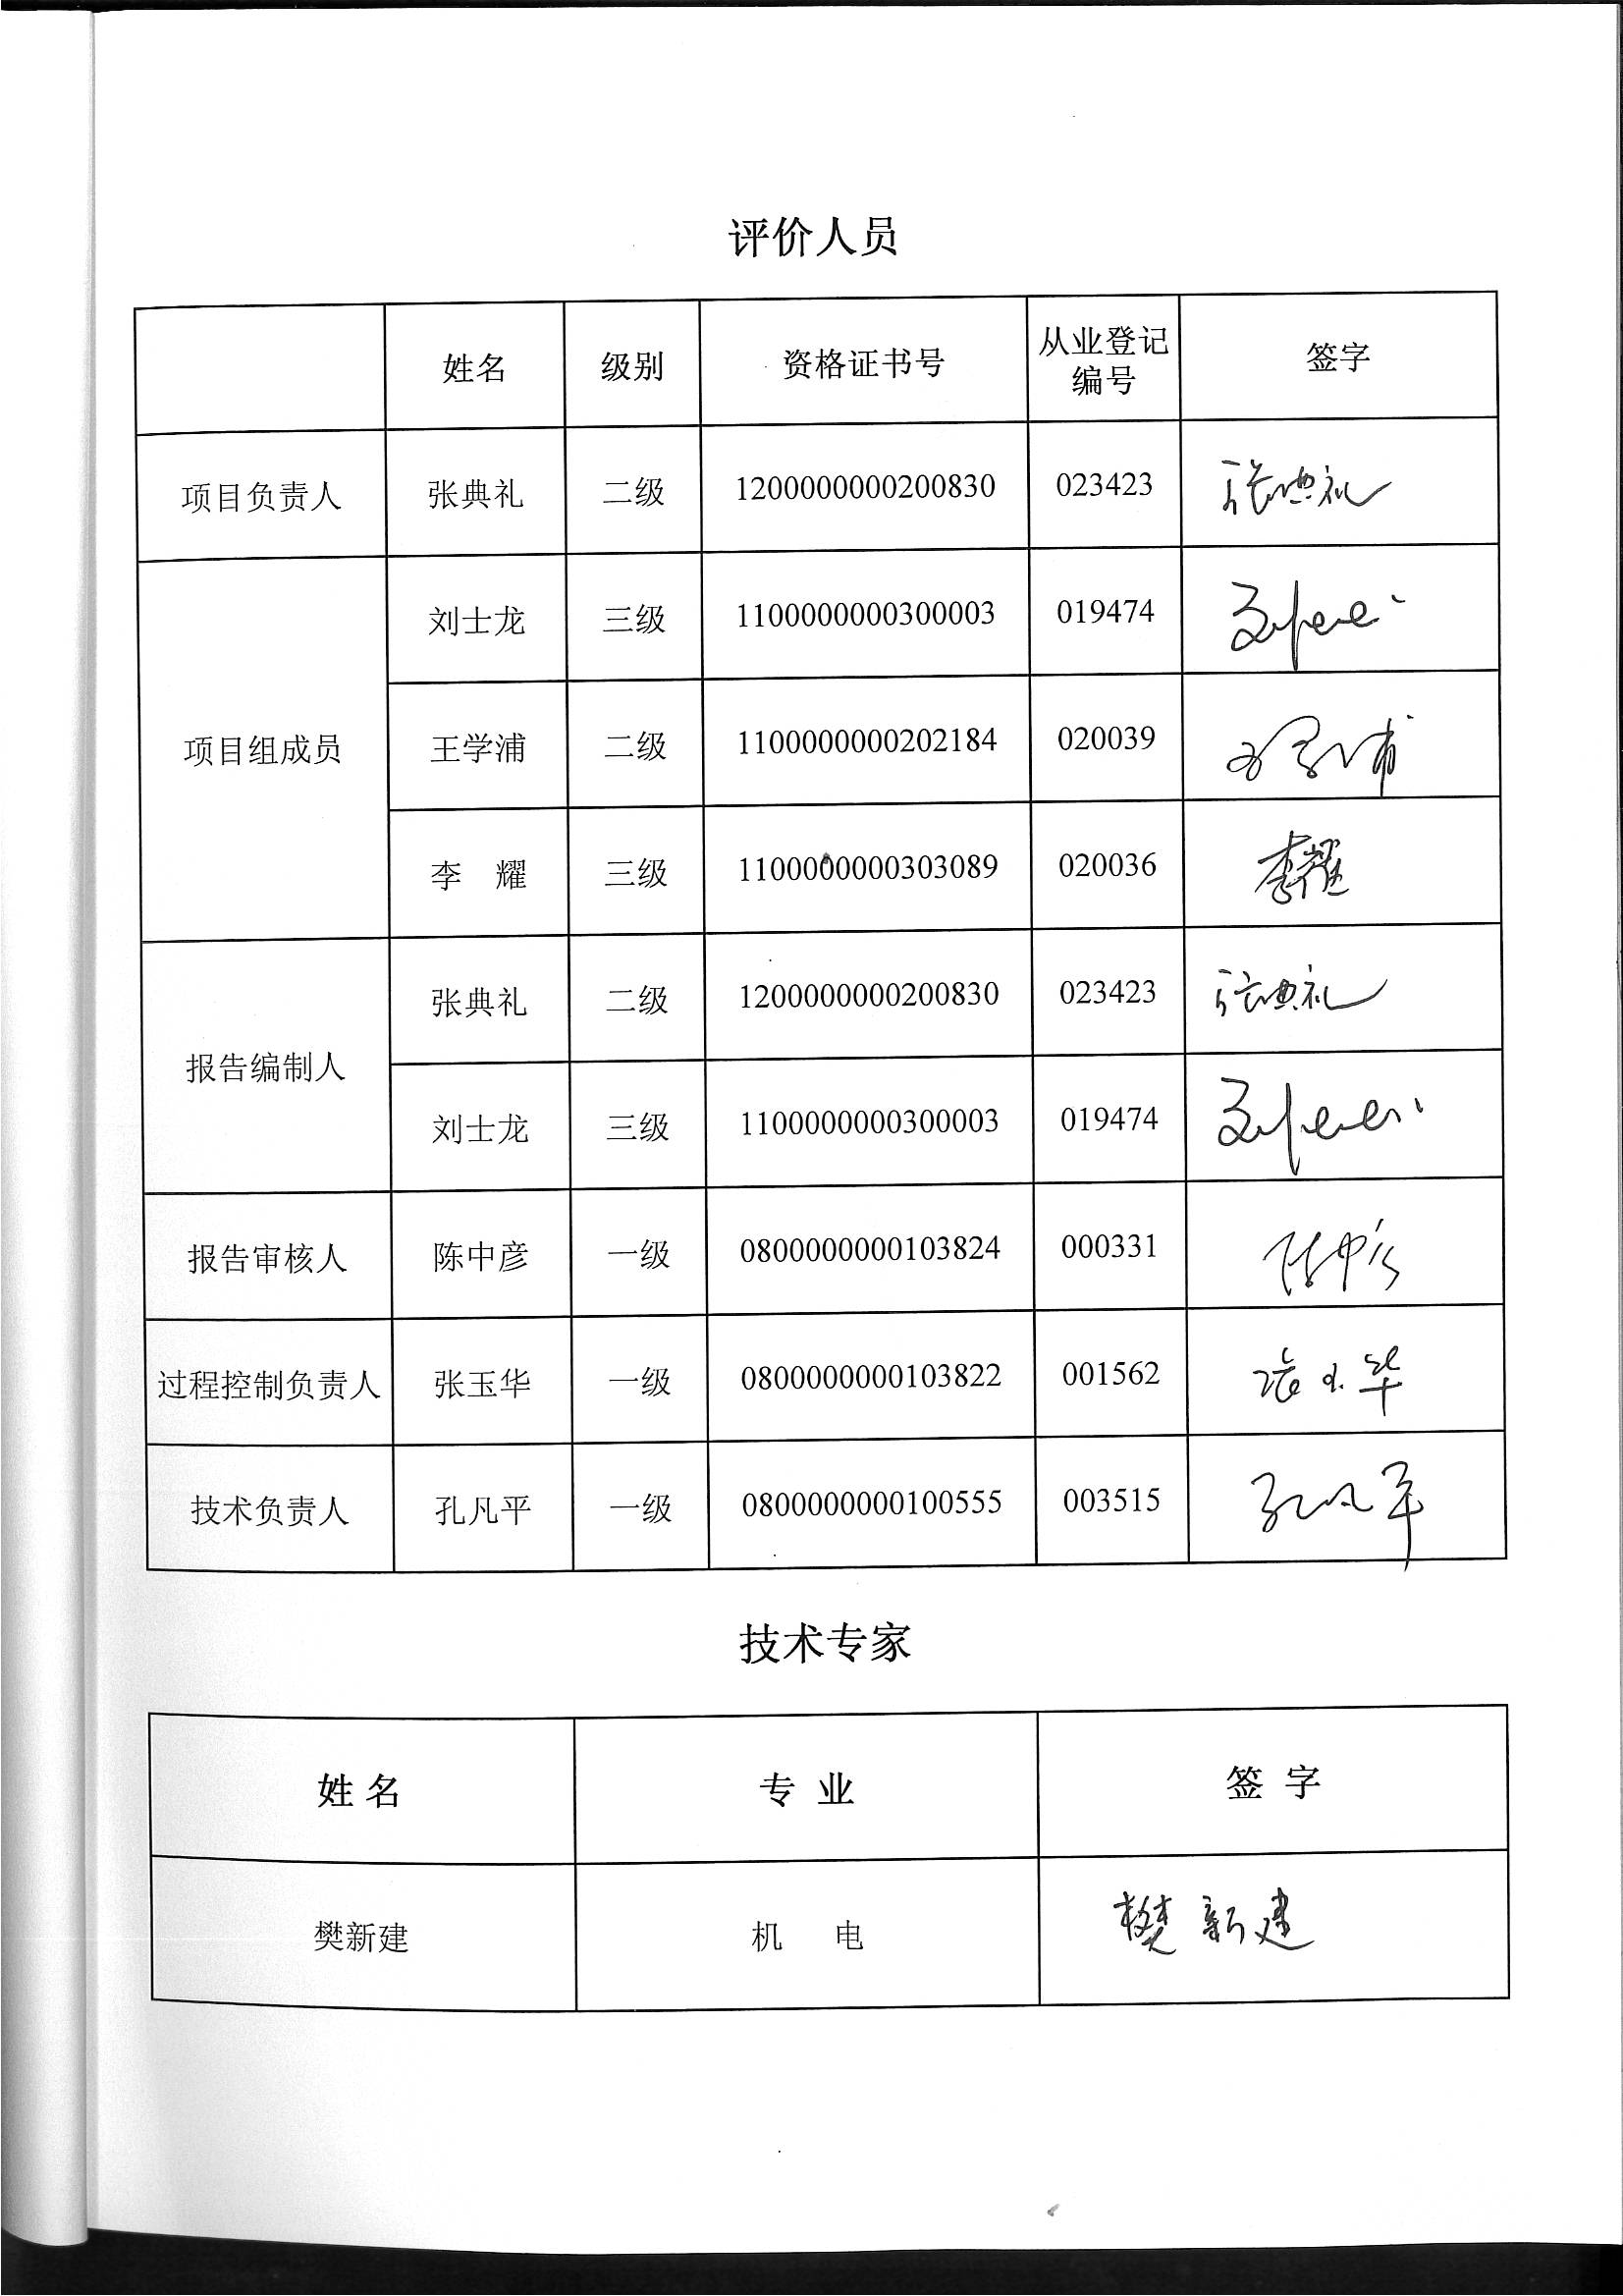 评价人员
姓名 级别 资格证书号 从业登记编号 签字
项目负责人 张典礼 二级 1200000000200830 023423 张典礼
项目组成员 刘士龙 三级 1100000000300003 019474
王学浦 二级 1100000000202184 020039 王学浦
李 耀 三级 1100000000303089 020036 李耀
报告编制人 张典礼 二级 1200000000200830 023423 张典礼
刘士龙 三级 1100000000300003 019474
报告审核人 陈中彦 一级 0800000000103824 000331 陈中彦
过程控制负责人 张玉华 一级 0800000000103822 001562 张玉华
技术负责人 孔凡平 一级 0800000000100555 003515 孔凡平
技术专家
姓 名 专 业 签 字
樊新建 机 电 樊新建